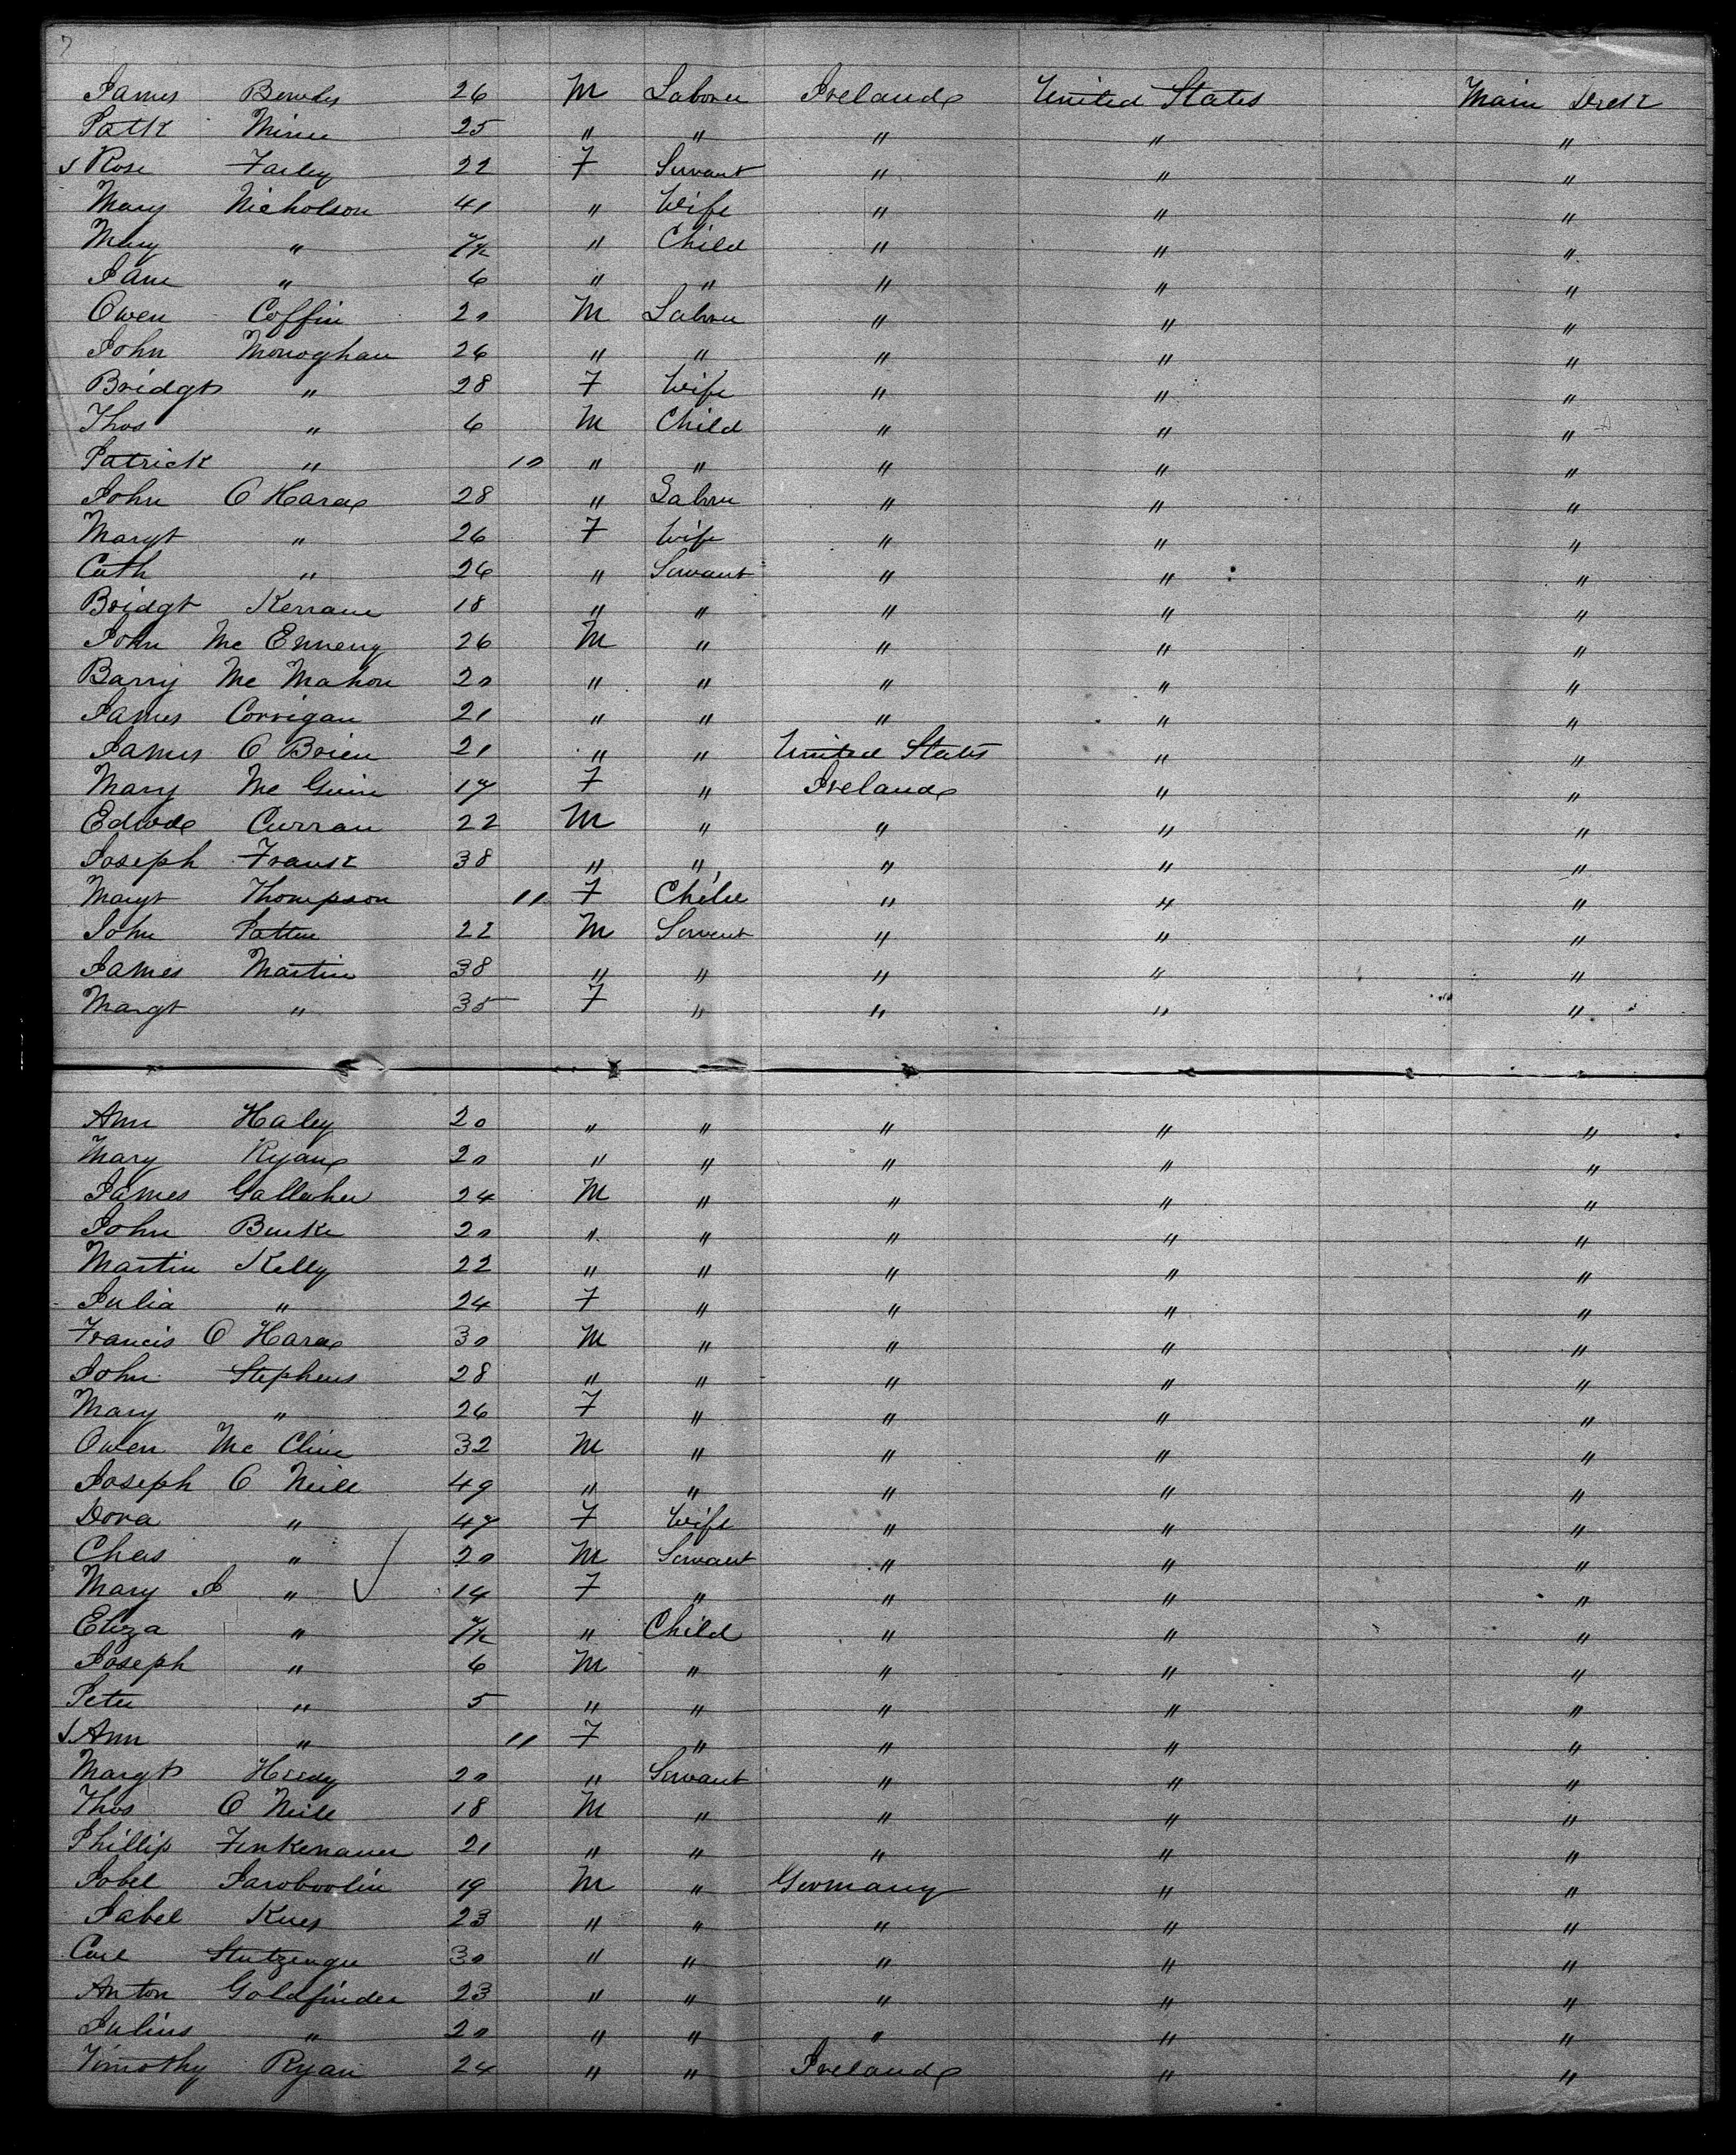 7
James 26 M Laborer Ireland United States Main Deck
Patk 25 " " " " "
✓ Rose Farley 22 F Servant " " "
Mary Nicholson 41 " Wife " " "
Mary " " Child " " "
Jane " 6 " " " " "
Owen Coffin 20 M Laborer " " "
John Monoghan 26 " " " " "
Bridgt " 28 F Wife " " "
Thos " 6 M Child " " "
Patrick " 10 " " " " "
John O Hara 28 " Laborer " " "
Margt " 26 F Wife " " "
Cath " 26 " Servant " " "
Bridgt Kerrane 18 " " " " "
John Mc Enneny 26 M " " " "
Barry Mc Mahon 20 " " " " "
James Corrigan 21 " " " " "
James O Brien 21 " " United States " "
Mary Mc Guire 17 F " Ireland " "
Edwd Curran 22 M " " " "
Joseph Frank 38 " " " " "
Margt Thompson 11 F Child " " "
John Patten 22 M Servant " " "
James Martin 38 " " " " "
Margt " 35 F " " " "
Ann Haley 20 " " " " "
Mary Ryan 20 " " " " "
James Gallaher 24 M " " " "
John Burke 20 " " " " "
Martin Kelly 22 " " " " "
Julia " 24 F " " " "
Francis O Hara 30 M " " " "
John Stephens 28 " " " " "
Mary " 26 F " " " "
Owen Mc Cline 32 M " " " "
Joseph O Neill 49 " " " " "
Dora " 47 F Wife " " "
Chas " 20 M Servant " " "
Mary J " ✓ 14 F " " " "
Eliza " " Child " " "
Joseph " 6 M " " " "
Peter " 5 " " " " "
✓ Ann " 11 F " " " "
Margt Heedy 20 " Servant " " "
Thos O Neill 18 M " " " "
Phillip Finkenauer 21 " " " " "
Jobel 19 M " Germany " "
Jabel Kues 23 " " " " "
Carl Stutzenger 30 " " " " "
Anton Goldfinder 23 " " " " "
Julius " 20 " " " " "
Timothy Ryan 24 " " Ireland " "